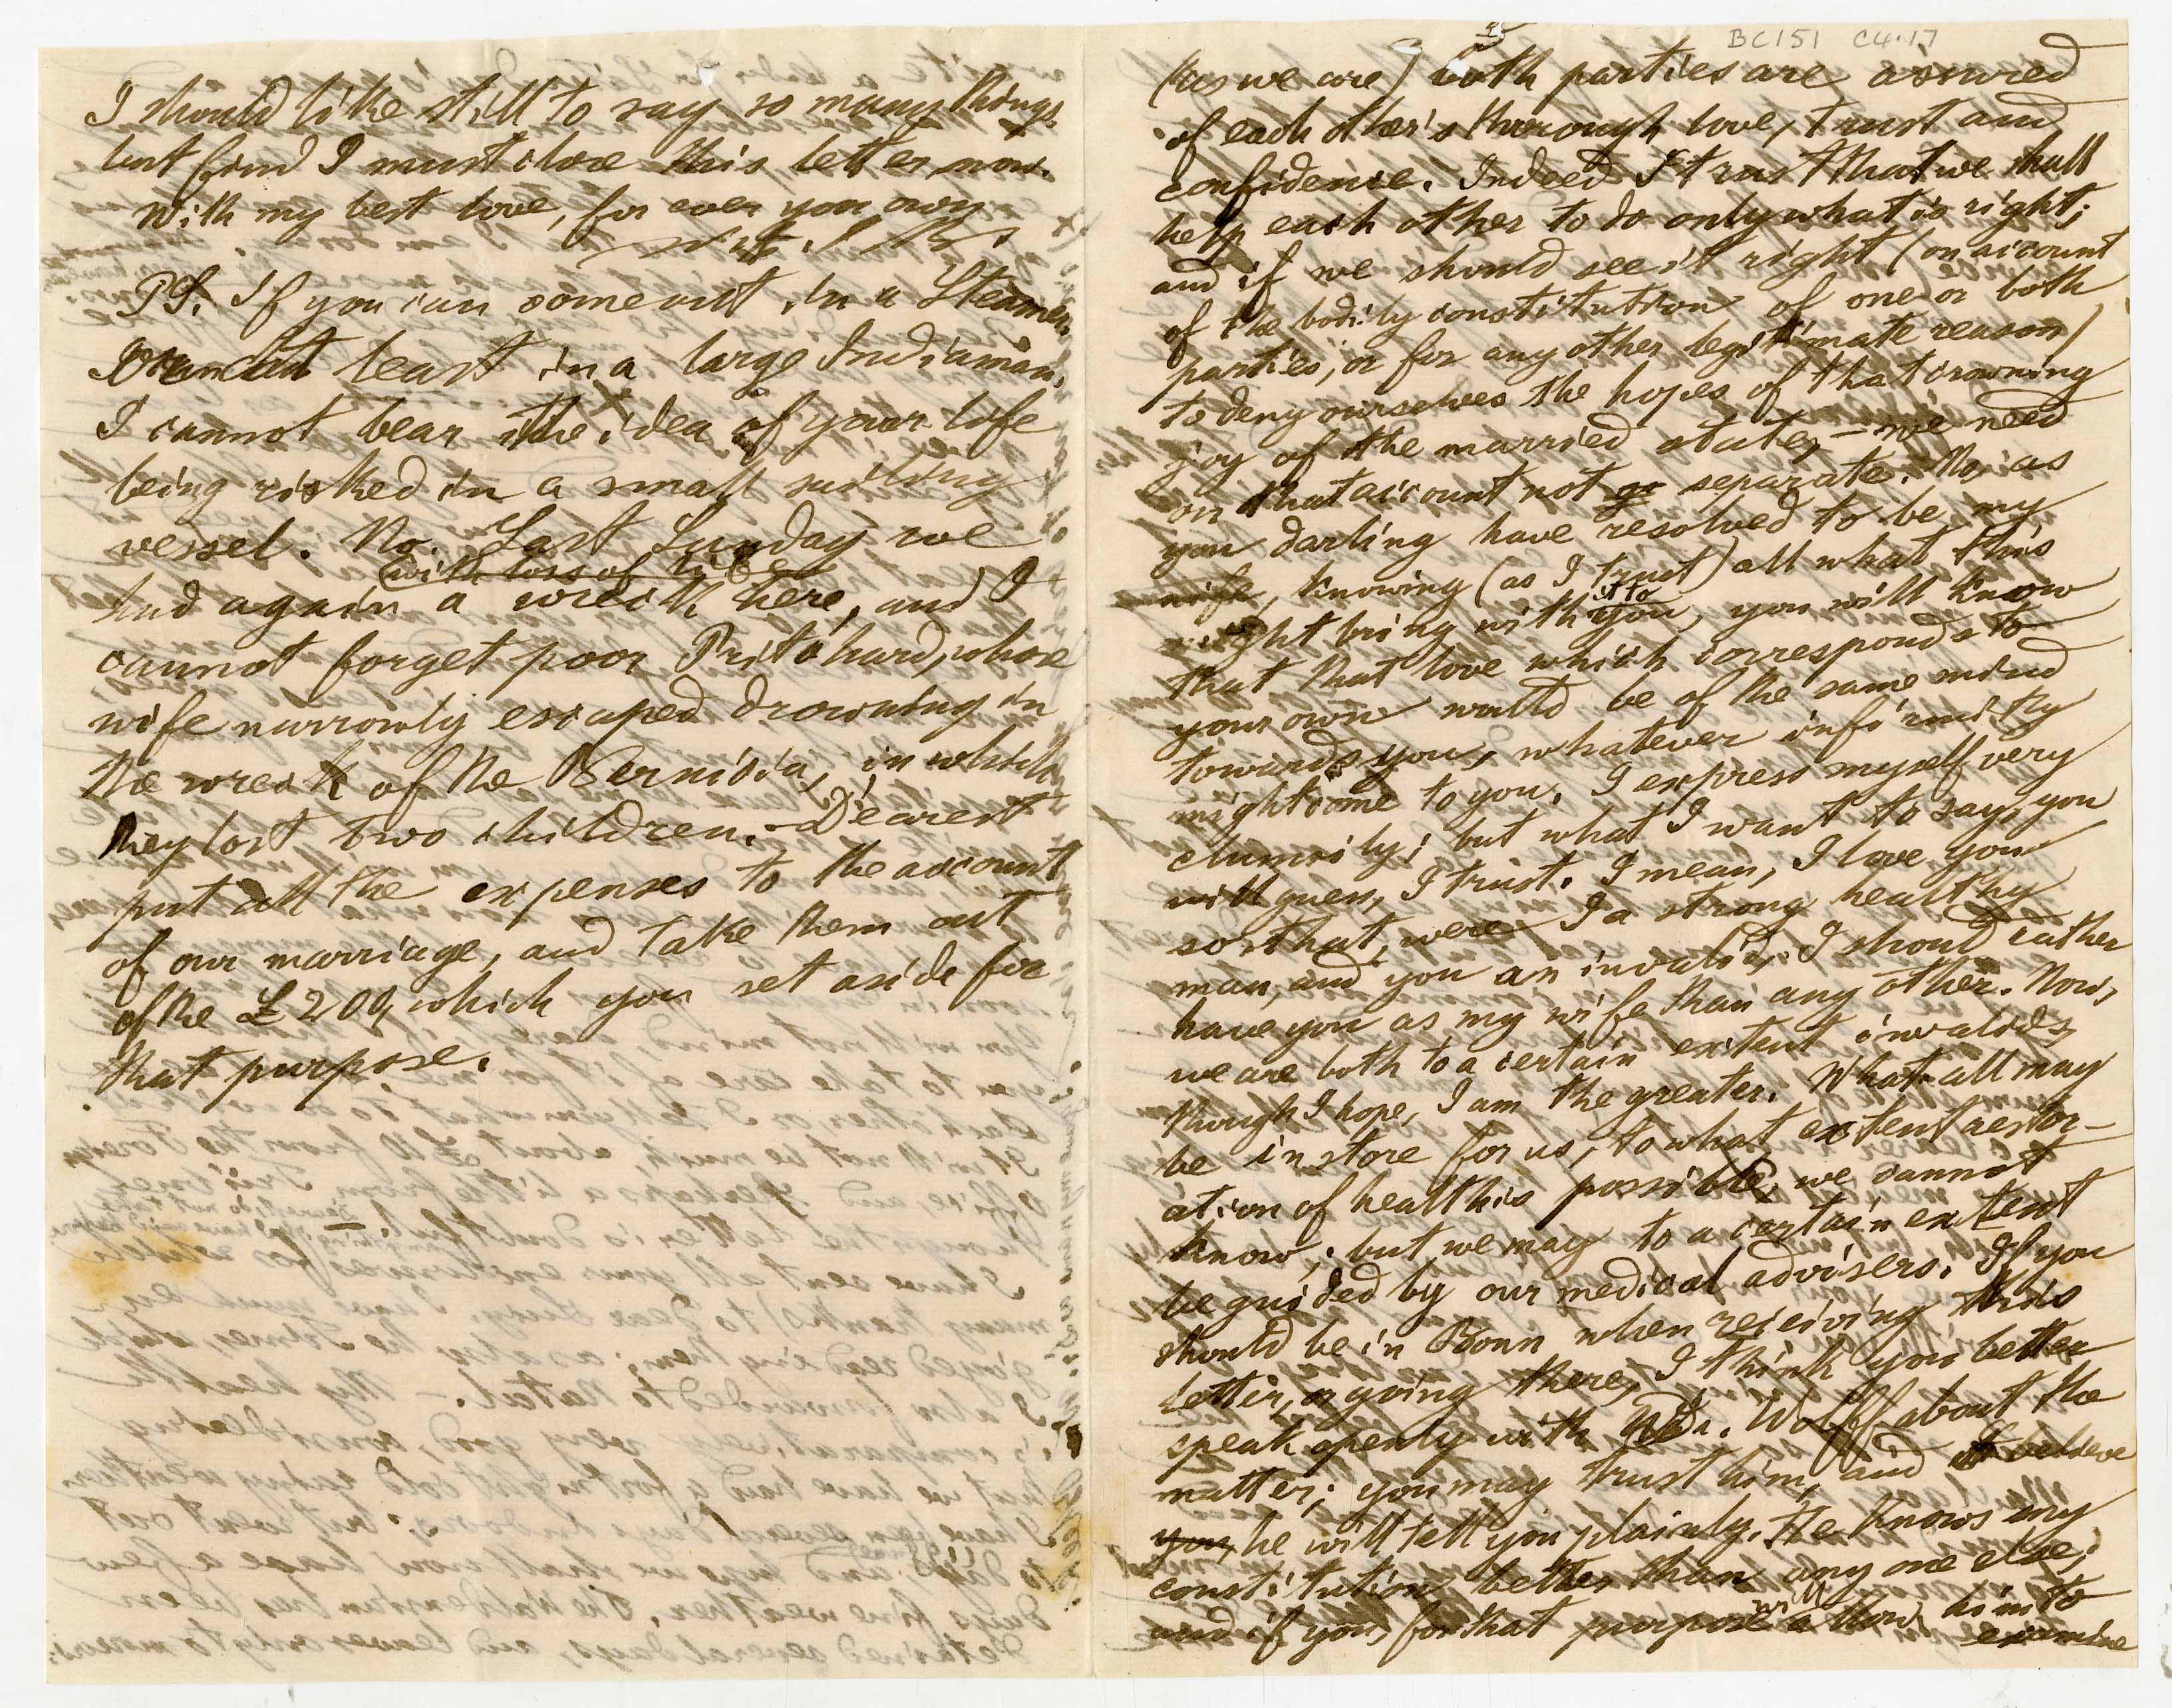 I should like still to say so many things
but find I must close this letter now.
With my best love, for ever your own
PS. If you can come out in a Steamer,
or at least in a large Indiaman,
I cannot bear the idea of your life
being risked in a small sailing
vessel. No. Last Sunday we
(with loss of life)
had again a wreck here, and I
cannot forget poor Pritchard, whose
wife narrowly escaped drowning in
the wreck of the Bernicia, in which
they lost two children. – Dearest
put all the expenses to the account
of our marriage, and take them out
of the £200, which you set aside for
that purpose.
3
BC151 C4.17
(as we are) both parties are assured
of each other's thorough love, trust and
confidence. Indeed I trust that we shall
help each other to do only what is right;
and if we should see it right (on account
of the bodily constitution of one or both
parties, or for any other legitimate reason)
to deny ourselves the hopes of that crowning
joy of the married state, – we need
on that account not go separate. No, as
you darling have resolved to be my
wife, knowing (as I trust) all what this
might bring with it to you, you will know
that that love which corresponds to
your own would be of the same mind
towards you, whatever infirmity
might come to you. I express myself very
clumsily; but what I want to say, you
will guess, I trust. I mean, I love you
so that, were I a strong healthy
man, and you an invalid, I should rather
have you as my wife than any other. Now,
we are both to a certain extent invalids,
though I hope, I am the greater. What all may
be in store for us, to what extent restor-
ation of health is possible, we cannot
know; but we may to a certain extent
be guided by our medical advisers. If you
should be in Bonn when receiving this
letter, or going there, I think you better
speak openly with Dr. Wolff about the
matter; you may trust him, and I believe
you, he will tell you plainly. He knows my
constitution better than any one else;
and if you for that purpose will allow him to
examine